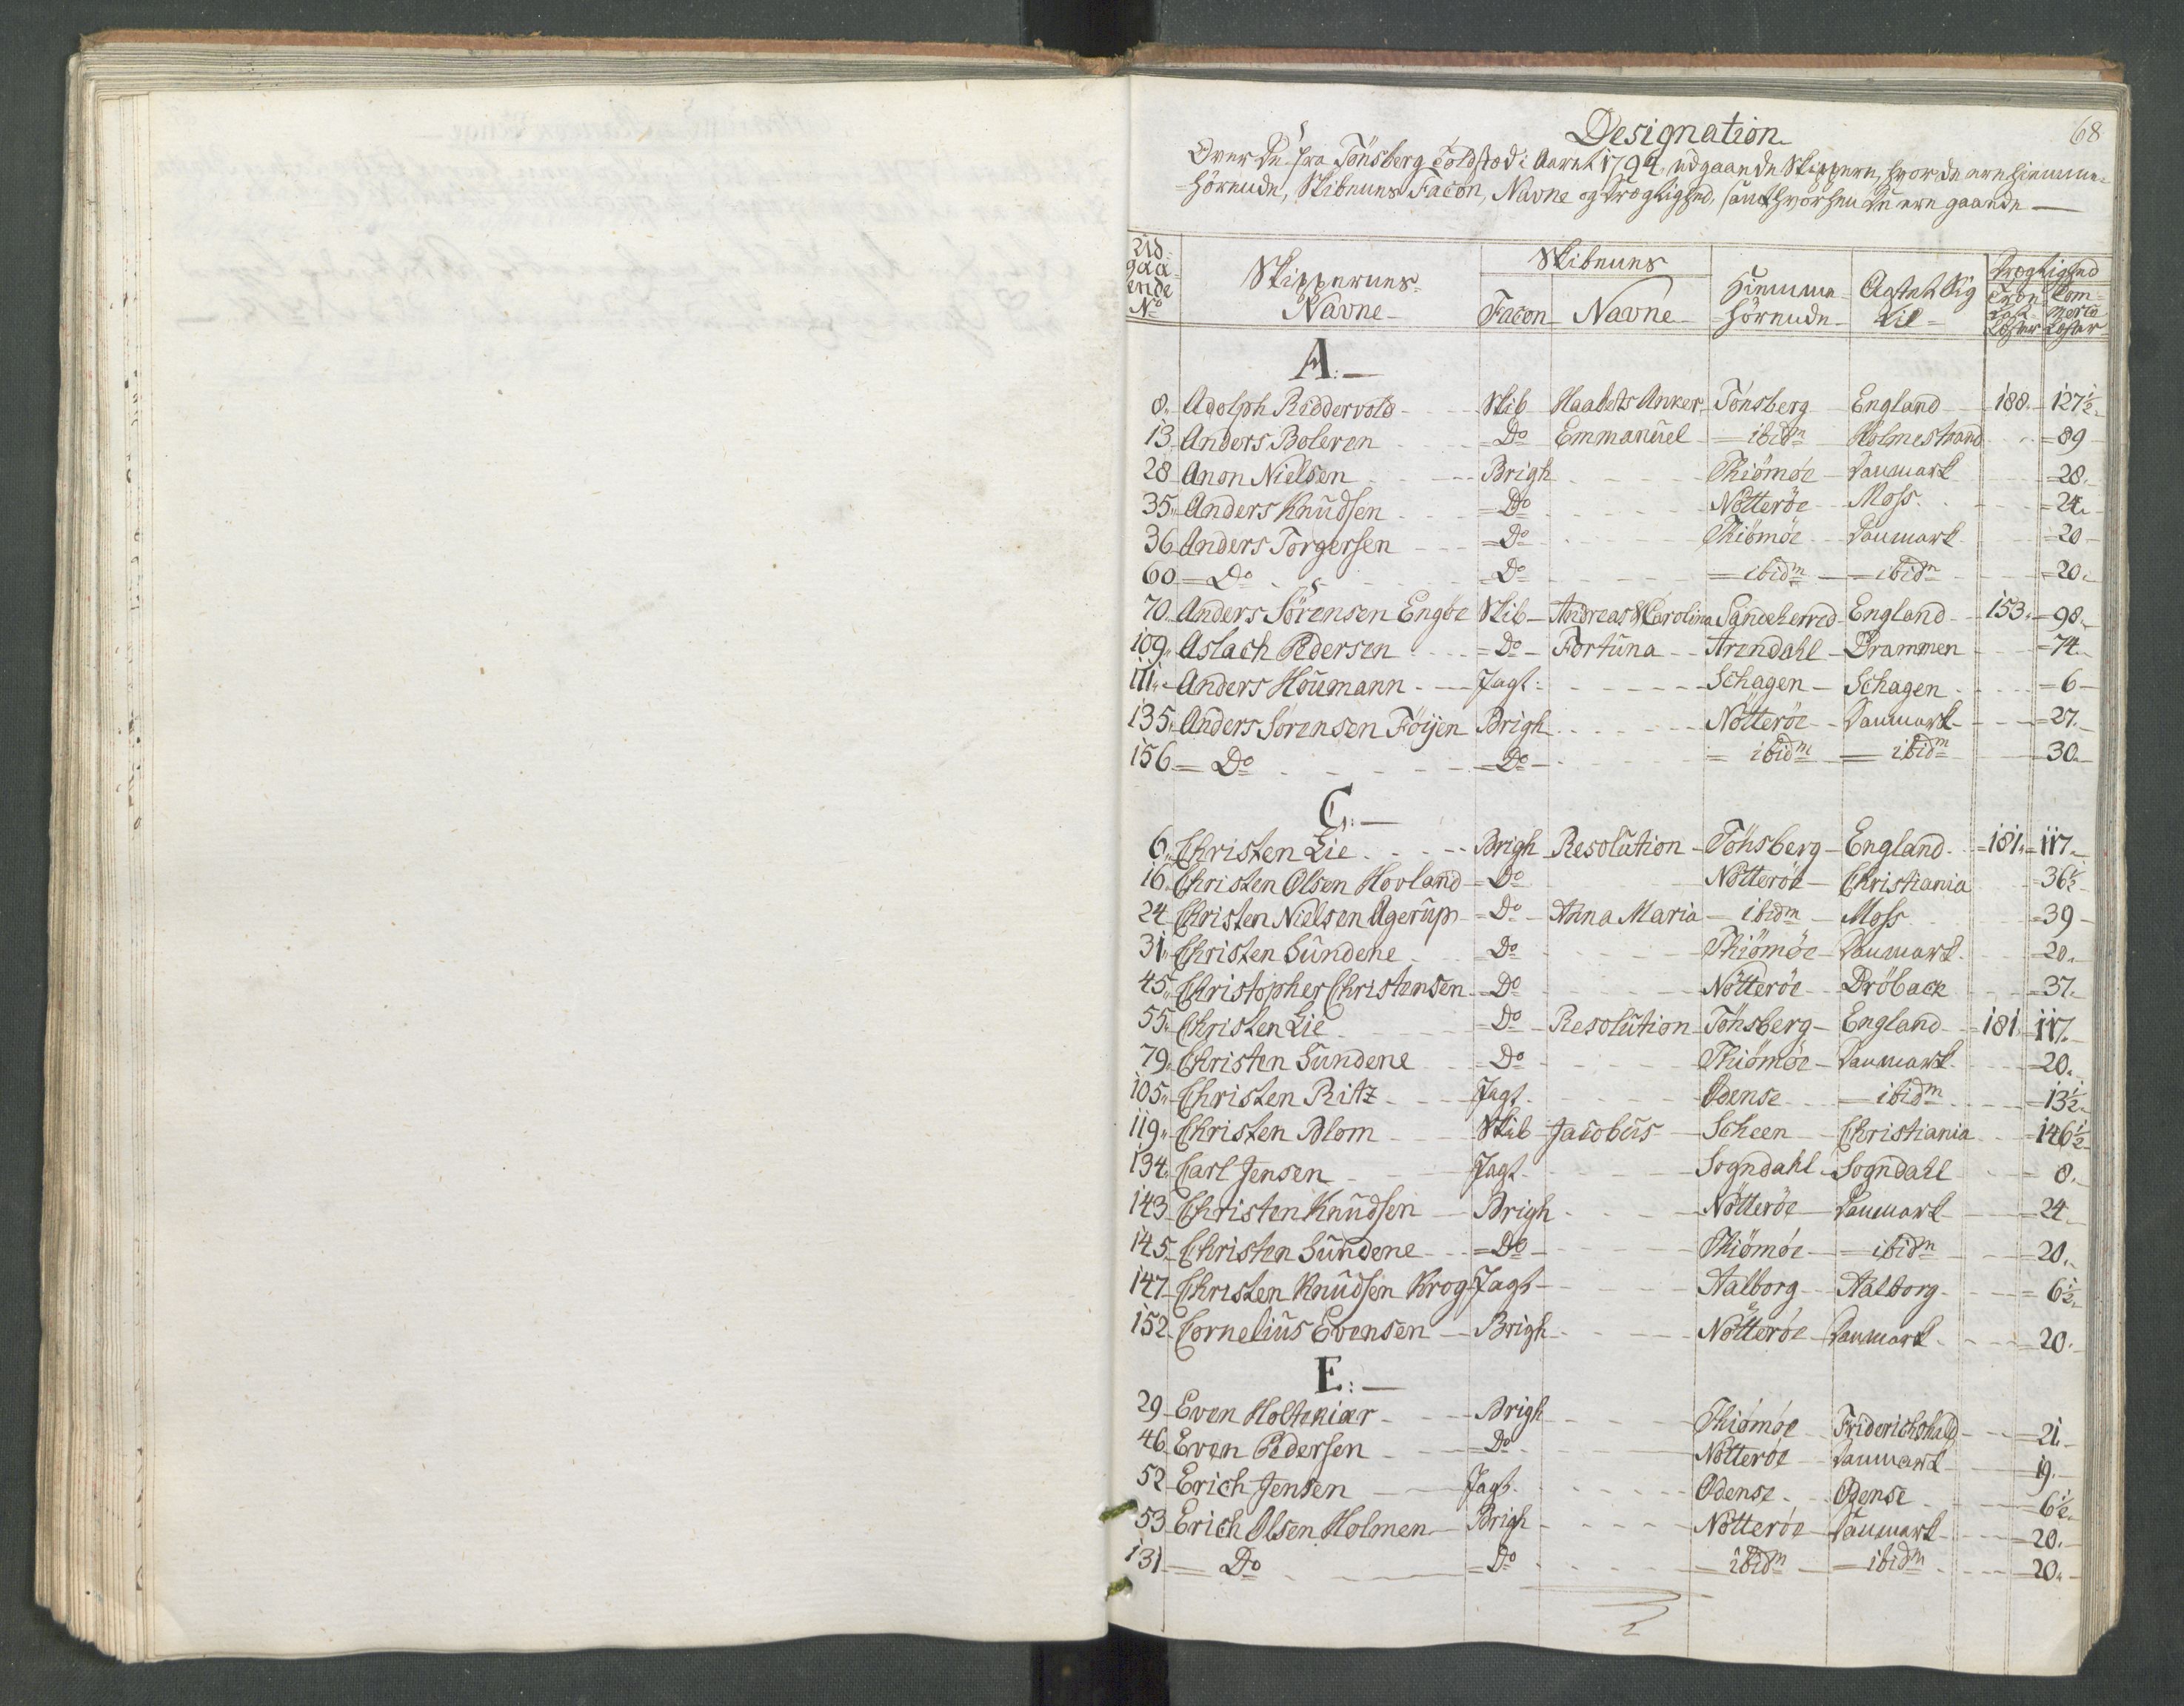 68
Designation
Over de fra Tönsberg Toldstæd i Aaret 1794 udgaaende Skippere, hvor de ere hiemme-
hörende, Skibenes Facon, Navne og Drægtighed, samt hvorhen de ere gaaende —
Ud-gaaende No | Skippernes Navne | Skibenes Facon | Navne | Hiemme-hörende | Agtet Sig til | Drægtighed | Træ-last Læster | Com-merce Læster
A:—
8. Adolph Riddervold - Skib Haabets Anker Tönsberg England 188. 127½
13 Anders Boleren Do Emmanuel ibidm Holmestrand 89
28 Anon Nielsen Brigh Thiömöe Danmark 28.
35. Anders Knudsen Do Nötteröe Moss 24.
36 Anders Torgersen Do Thiömöe Danmark 20
60 Do Do ibidm ibidm 20.
70. Anders Sörensen Engöe Skib Andreas & Carolina Sandeherred England 153. 98.
109. Aslach Pedersen Do Fortuna Arendahl Drammen 74.
111. Anders Houmann Jagt Schagen Schagen 6
135. Anders Sörensen Föijen Brigh Nötteröe Danmark 27.
156 Do Do ibidm ibidm 30.
C:—
6. Christen Lie Brigh Resolution Tönsberg England 181. 117.
16. Christen Olsen Hovland Do Nötteröe Christiania 36½
24 Christen Nielsen Agerup Do Anna Maria ibidm Moss 39
31. Christen Sundene Do Thiömöe Danmark 20.
45. Christopher Christensen Do Nötteröe Dröback 37.
55. Christen Lie Do Resolution Tönsberg England 181. 117.
79. Christen Sundene Do Thiömöe Danmark 20.
105. Christen Ritz Jagt Odense ibidm 13½
119. Christen Blom Skib Jacobus Scheen Christiania 146½
134. Carl Jensen Jagt Sogndahl Sogndahl 8.
143 Christen Knudsen Brigh Nötteröe Danmark 24
145. Christen Sundene Do Thiömöe ibidm 20.
147. Christen Knudsen Krog Jagt Aalborg Aalborg 6½
152. Cornelius Evensen Brigh Nötteröe Danmark 20.
E:—
29 Even Holtekiær Brigh Thiömöe Friderichshald 21.
46. Even Pedersen Do Nötteröe Danmark 19.
52 Erich Jensen Jagt Odense Odense 6½
53 Erich Olsen Holmen Brigh Nötteröe Danmark 20.
131 Do Do ibidm ibidm 20.